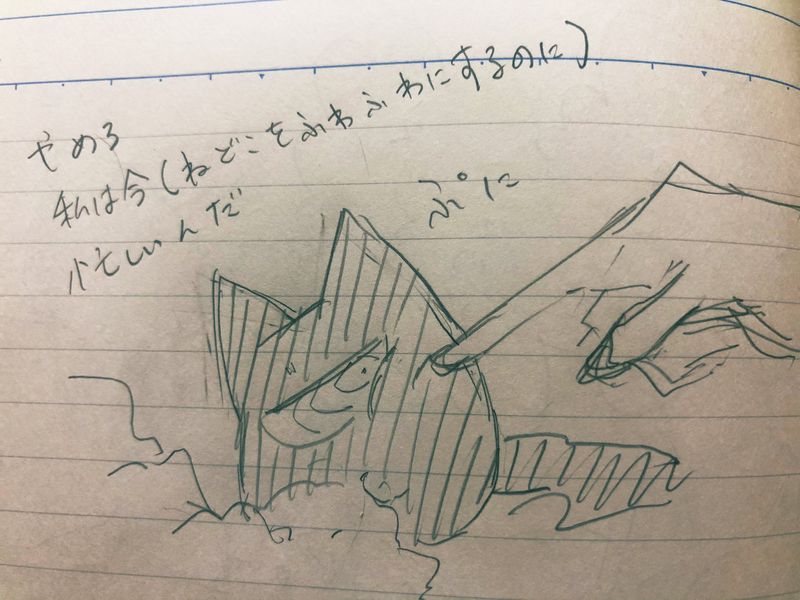 やめろ
私は今(ねどこをふわふわにするのに)
忙しいんだ
ぷに